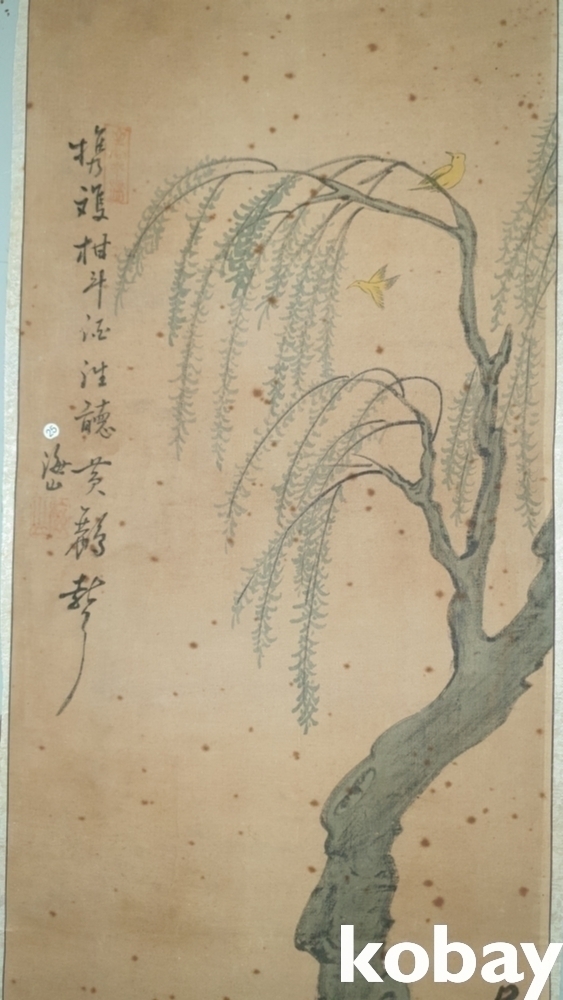 携雙柑斗酒往聽黃鸝聲
海山
26
kobay